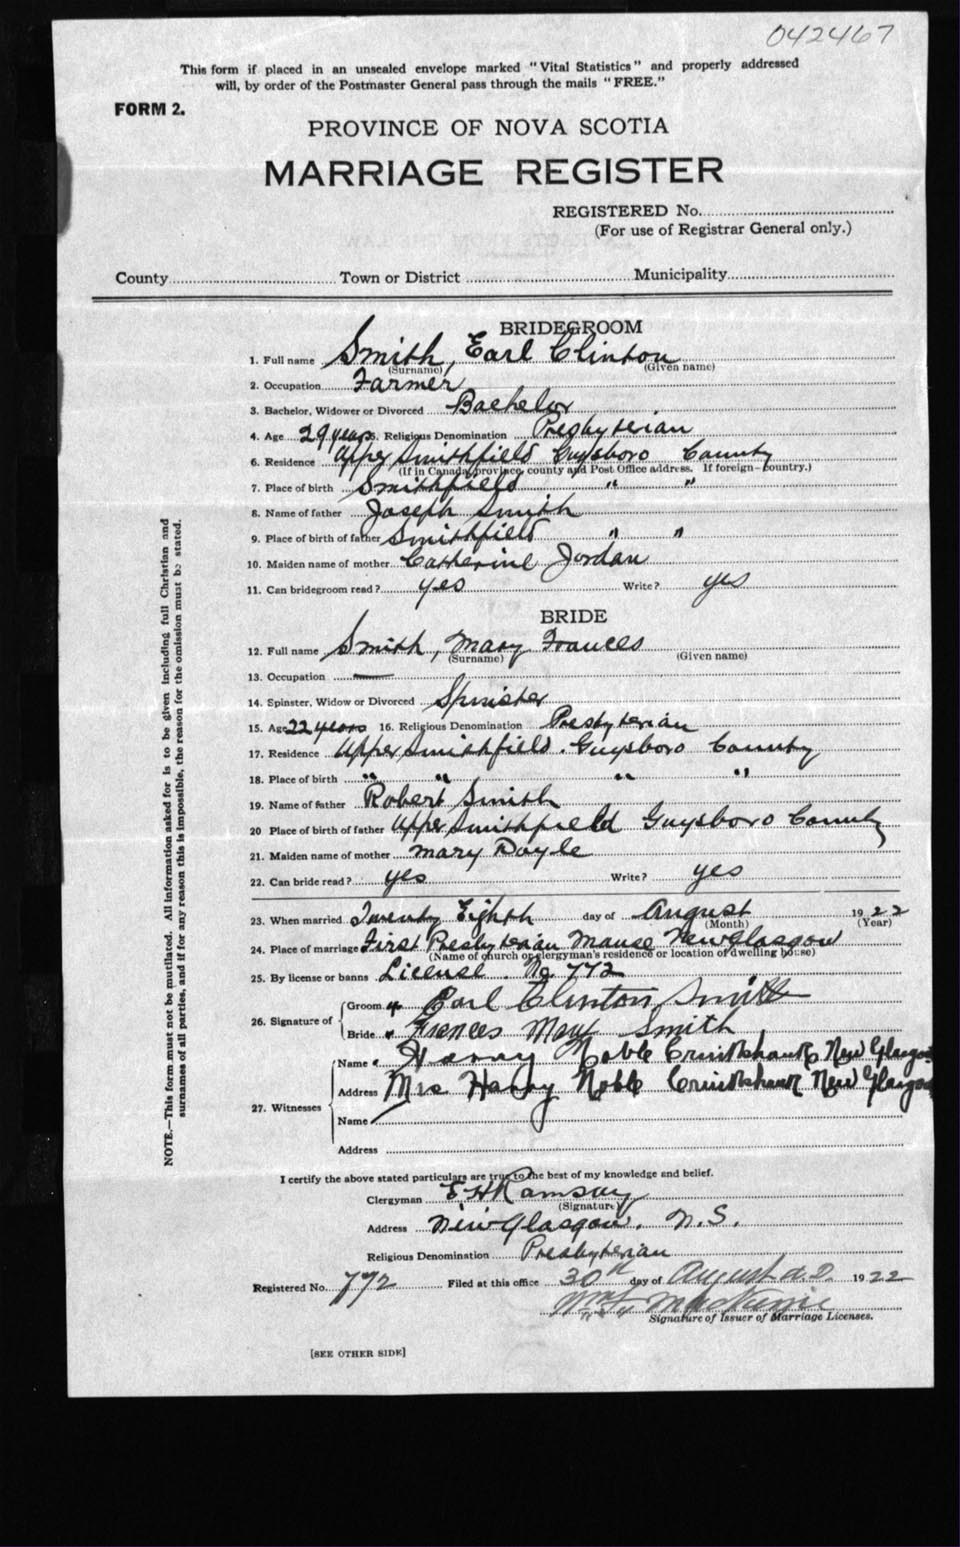 042467
This form if placed in an unsealed envelope marked "Vital Statistics" and properly addressed
will, by order of the Postmaster General pass through the mails "FREE."
FORM 2.
PROVINCE OF NOVA SCOTIA
MARRIAGE REGISTER
REGISTERED No.
(For use of Registrar General only.)
County Town or District Municipality
BRIDEGROOM
1. Full name Smith, Earl Clinton
(Surname) (Given name)
2. Occupation Farmer
3. Bachelor, Widower or Divorced Bachelor
4. Age 29 years 5. Religious Denomination Presbyterian
6. Residence Upper Smithfield Guysboro County
(If in Canada, province, county and Post Office address. If foreign—country.)
7. Place of birth Smithfield " "
8. Name of father Joseph Smith
9. Place of birth of father Smithfield " "
10. Maiden name of mother Catherine Jordan
11. Can bridegroom read? yes Write? yes
BRIDE
12. Full name Smith, Mary Frances
(Surname) (Given name)
13. Occupation —
14. Spinster, Widow or Divorced Spinister
15. Age 22 years 16. Religious Denomination Presbyterian
17. Residence Upper Smithfield. Guysboro County
18. Place of birth " " " "
19. Name of father Robert Smith
20 Place of birth of father Upper Smithfield Guysboro County
21. Maiden name of mother Mary Doyle
22. Can bride read? yes Write? yes
23. When married Twenty Eighth day of August 1922
(Month) (Year)
24. Place of marriage First Presbyterian Manse New Glasgow
(Name of church or clergyman's residence or location of dwelling house)
25. By license or banns License. No 772
26. Signature of Groom Earl Clinton Smith
Bride Frances Mary Smith
27. Witnesses Name Harry Noble Cruikshank New Glasgow
Address Mrs Harry Noble Cruikshank New Glasgow
Name
Address
I certify the above stated particulars are true to the best of my knowledge and belief.
Clergyman E H Ramsay
(Signature)
Address New Glasgow. N.S.
Religious Denomination Presbyterian
Registered No. 772 Filed at this office 30th day of August A.D. 1922
MacKenzie
Signature of Issuer of Marriage Licenses.
[SEE OTHER SIDE]
NOTE.—This form must not be mutilated. All information asked for is to be given including full Christian and
surnames of all parties, and if for any reason this is impossible, the reason for the omission must be stated.